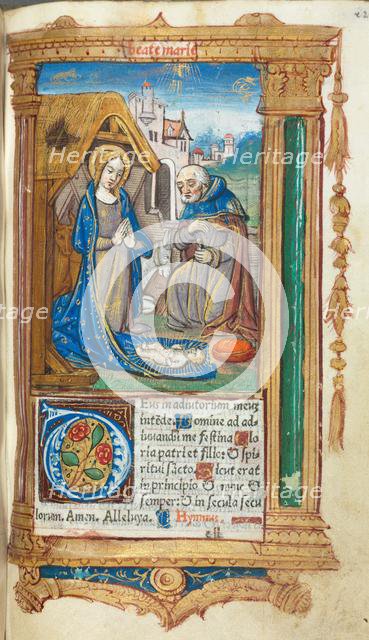 beate marie
Heritage Heritage
Deus in adiutorium meuz
intēde. Domine ad ad
iuuandū me festina Glo
ria patri et filio: ⁊ spi
ritui sācto. Sicut erat
in principio ⁊ nunc ⁊
semper: ⁊ in secula secu
lorum. Amen. Alleluya. Hymnus.
Heritage Heritage